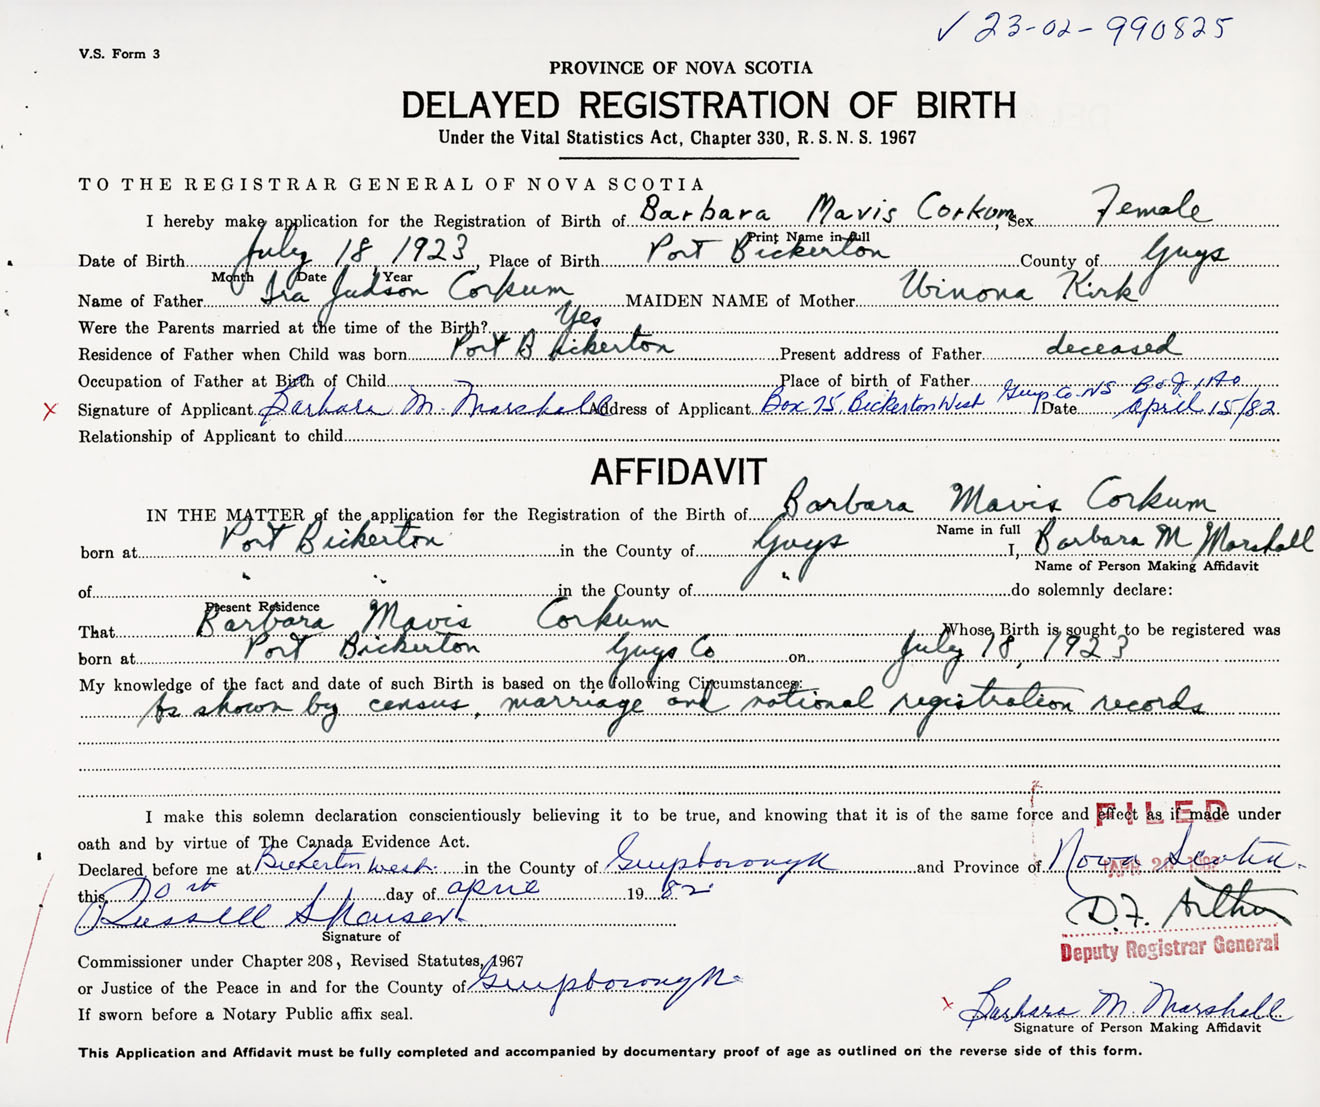 ✓ 23-02-990825
V.S. Form 3
PROVINCE OF NOVA SCOTIA
DELAYED REGISTRATION OF BIRTH
Under the Vital Statistics Act, Chapter 330, R. S. N. S. 1967
TO THE REGISTRAR GENERAL OF NOVA SCOTIA
I hereby make application for the Registration of Birth of Barbara Mavis Corkum, Sex Female
Print Name in full
Date of Birth July 18 1923, Place of Birth Port Bickerton County of Guys
Month Date Year
Name of Father Ira Judson Corkum MAIDEN NAME of Mother Winona Kirk
Were the Parents married at the time of the Birth? Yes
Residence of Father when Child was born Port Bickerton Present address of Father deceased
Occupation of Father at Birth of Child Place of birth of Father
X Signature of Applicant Barbara M. Marshall Address of Applicant Box 75, Bickerton West Guys. Co. NS Date April 15/82
Relationship of Applicant to child
AFFIDAVIT
IN THE MATTER of the application for the Registration of the Birth of Barbara Mavis Corkum
Name in full
born at Port Bickerton in the County of Guys I, Barbara M Marshall
Name of Person Making Affidavit
of " " in the County of " do solemnly declare:
Present Residence
That Barbara Mavis Corkum Whose Birth is sought to be registered was
born at Port Bickerton Guys Co on July 18, 1923
My knowledge of the fact and date of such Birth is based on the following Circumstances:
As shown by census, marriage and national registration records
I make this solemn declaration conscientiously believing it to be true, and knowing that it is of the same force and effect as if made under
FILED
oath and by virtue of The Canada Evidence Act.
Declared before me at Bickerton West in the County of Guysborough and Province of Nova Scotia
this 20th day of April 1982
D.F. Arthur
Russell
Signature of
Deputy Registrar General
Commissioner under Chapter 208, Revised Statutes, 1967
or Justice of the Peace in and for the County of Guysborough
If sworn before a Notary Public affix seal.
X Barbara M. Marshall
Signature of Person Making Affidavit
This Application and Affidavit must be fully completed and accompanied by documentary proof of age as outlined on the reverse side of this form.